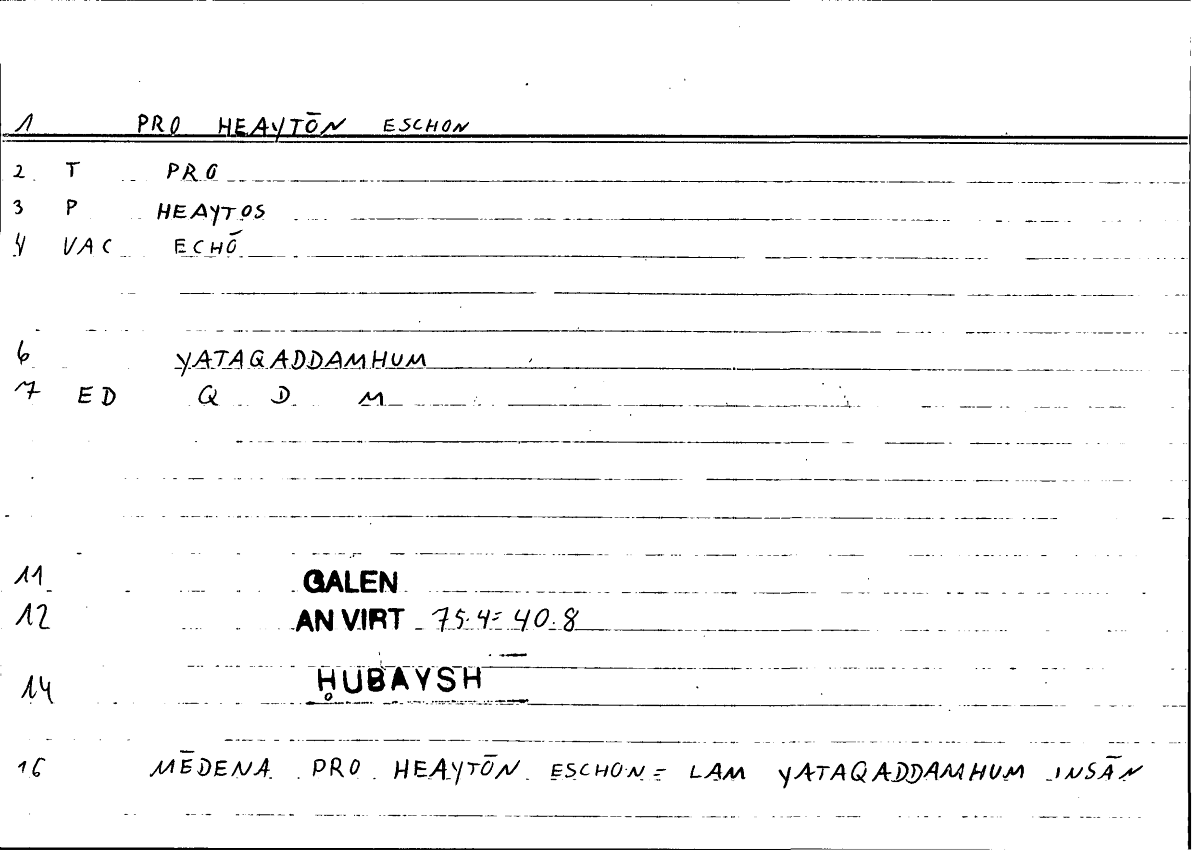 1 PRO HEAYTŌN ESCHON
2 T PRO
3 P HEAYTOS
4 VAC ECHŌ
6 YATAQADDAMHUM
7 ED Q D M
11 GALEN
12 AN VIRT 75.4=40.8
14 ḤUBAYSH
16 MĒDENA PRO HEAYTŌN ESCHON = LAM YATAQADDAMHUM INSĀN